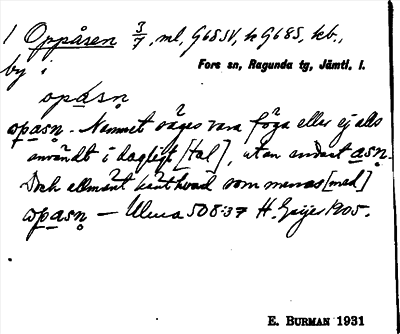 1 Oppåsen 3/7, ml, G68SV, k G68S, kb.,
by i Fors sn, Ragunda tg, Jämtl. l.
opåsn̥
opasn̥. Namnet säges vara föga eller ej alls
använt i dagligt [tal], utan endast åsn̥.
Dock allmänt känt vad som menas [med]
opåsn̥ – Ulma 508:37 H. Geijer 1905.
E. BURMAN 1931